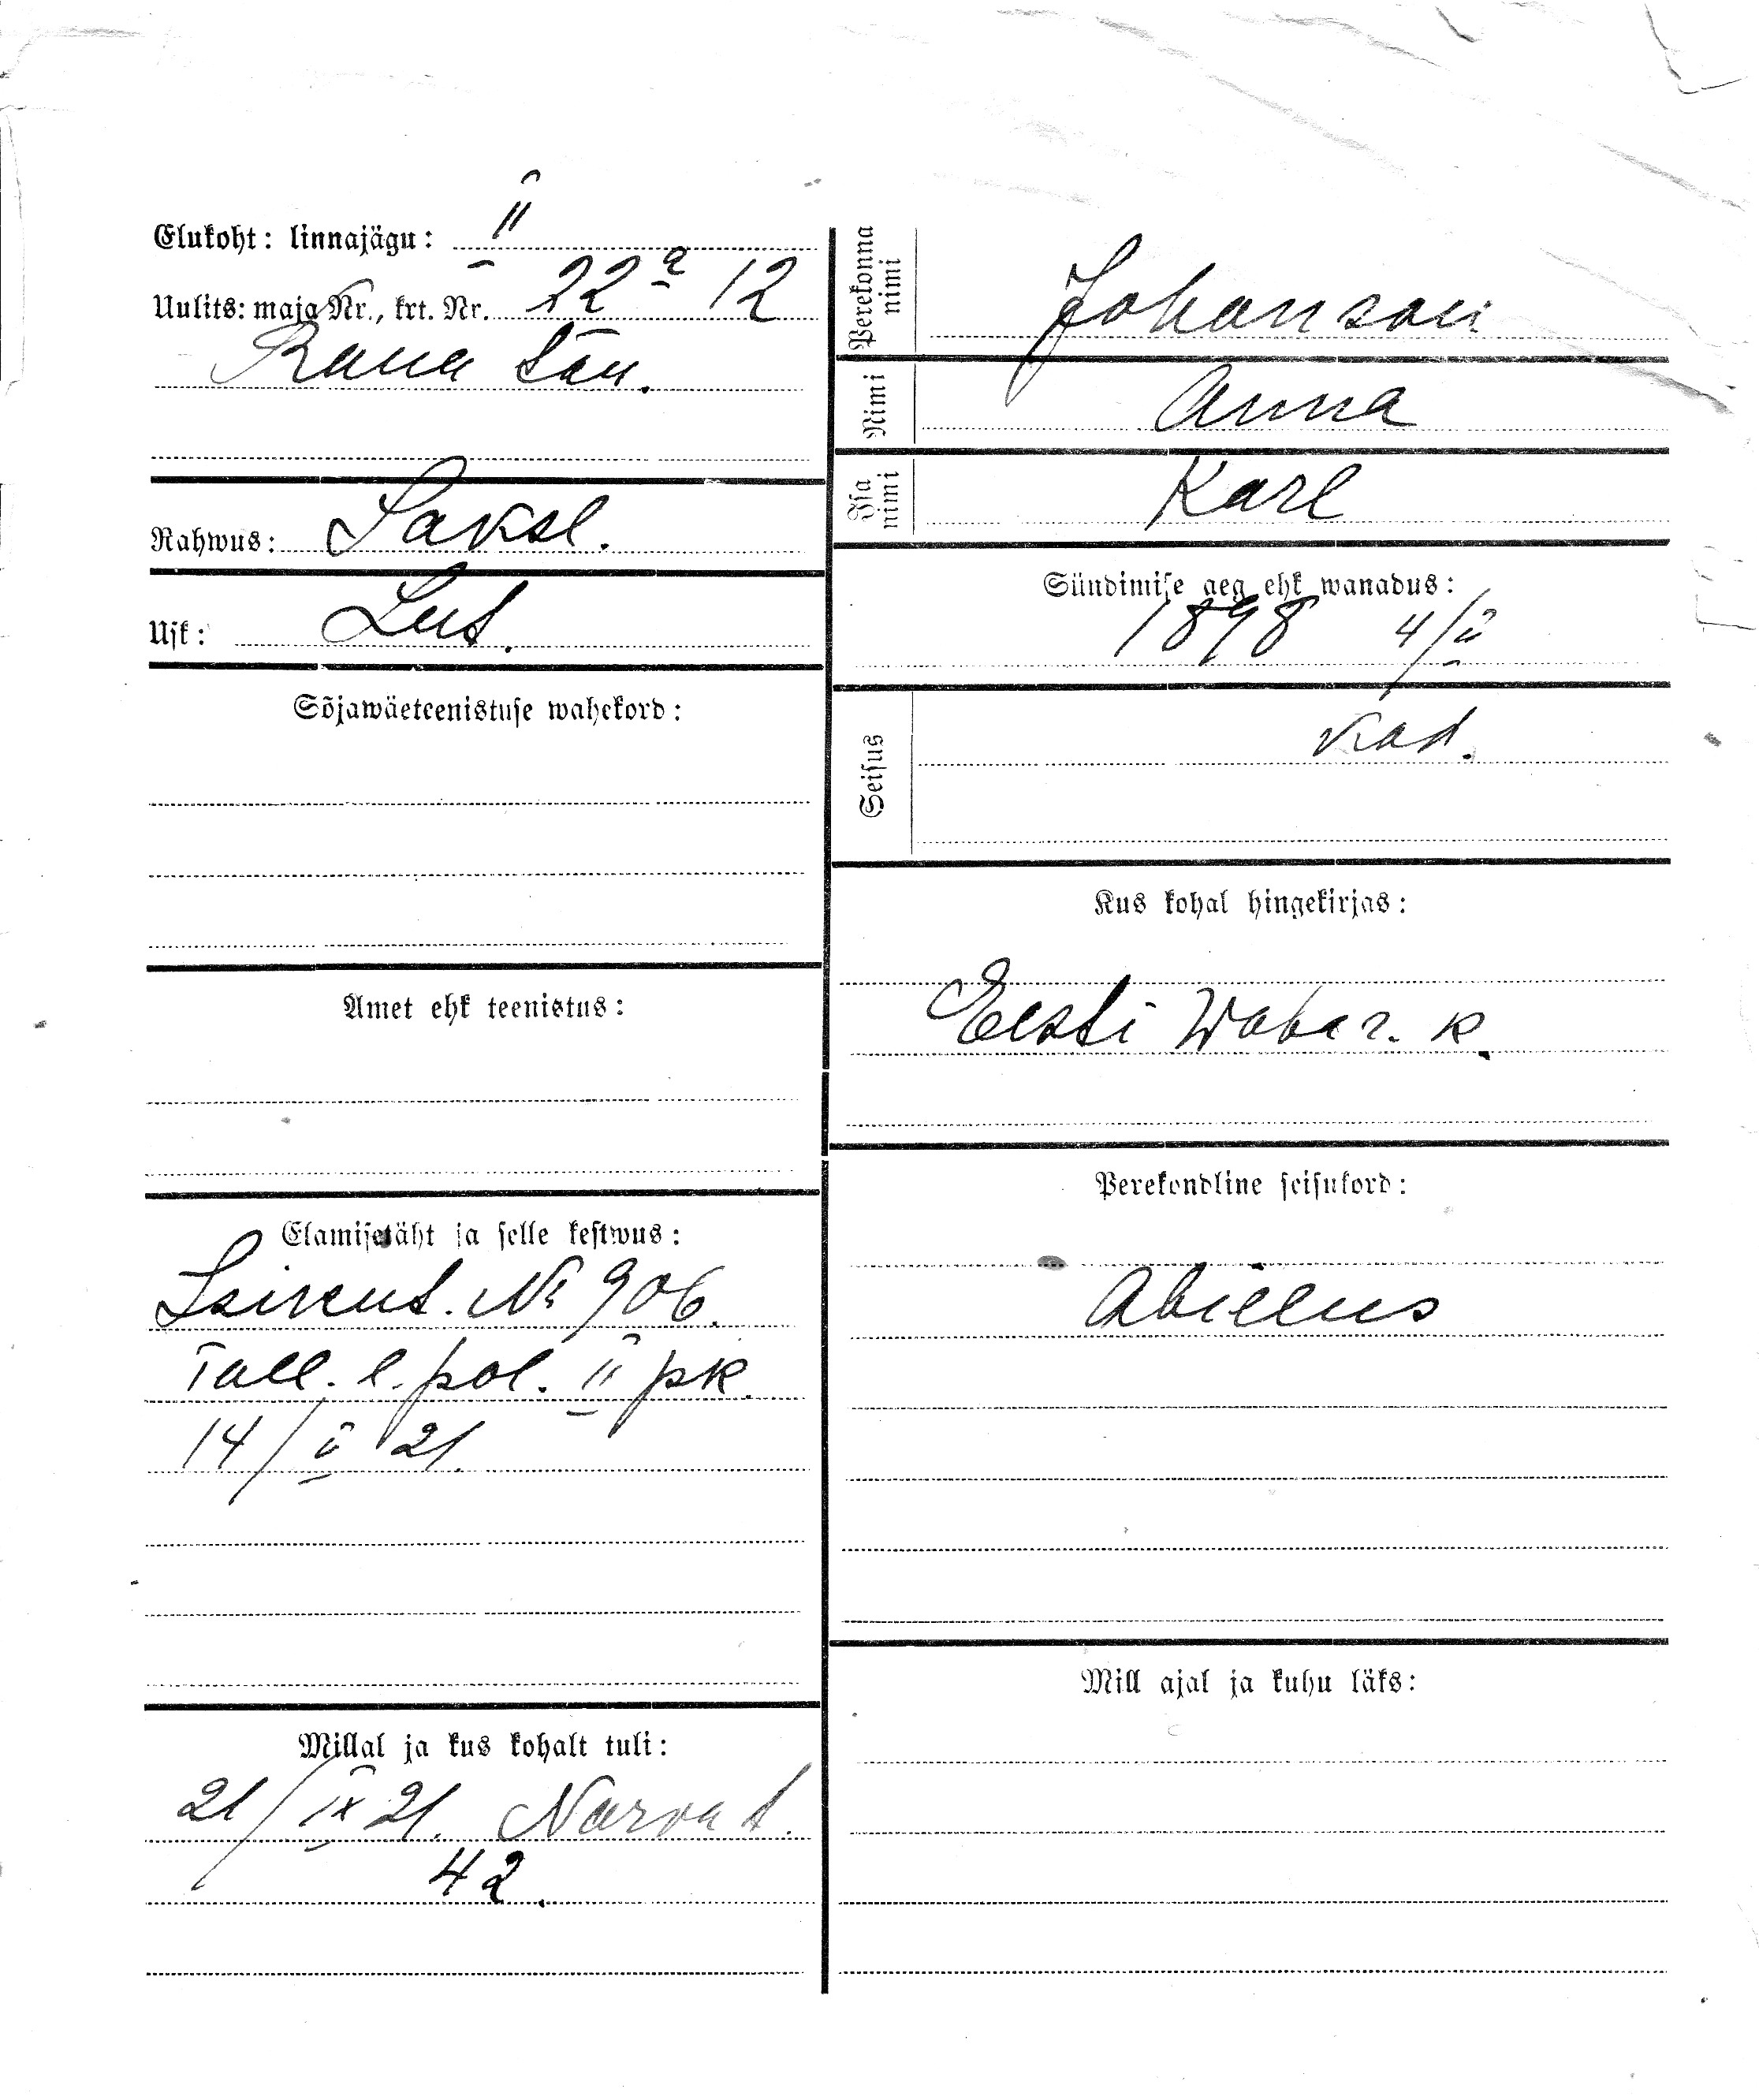 Elukoht: linnajägu: II
Uulits: maja Nr., krt. Nr. 22a 12
Raua tän.
Rahwus: Saksl.
Usk: Lut.
Sõjawäeteenistuse wahekord:
Amet ehk teenistus:
Elamisetäht ja selle kestwus:
Isikut. № 906.
Tall. l. pol. II pk.
14/V 21.
Millal ja kus kohalt tuli:
21/IX 21. Narva t.
42.
Perekonna nimi Johanson
Nimi Anna
Isa nimi Karl
Sündimise aeg ehk wanadus:
1898 4/II
Seisus kod.
Kus kohal hingekirjas:
Eesti Waba r. k.
Perekondline seisukord:
Abielus
Mill ajal ja kuhu läks: